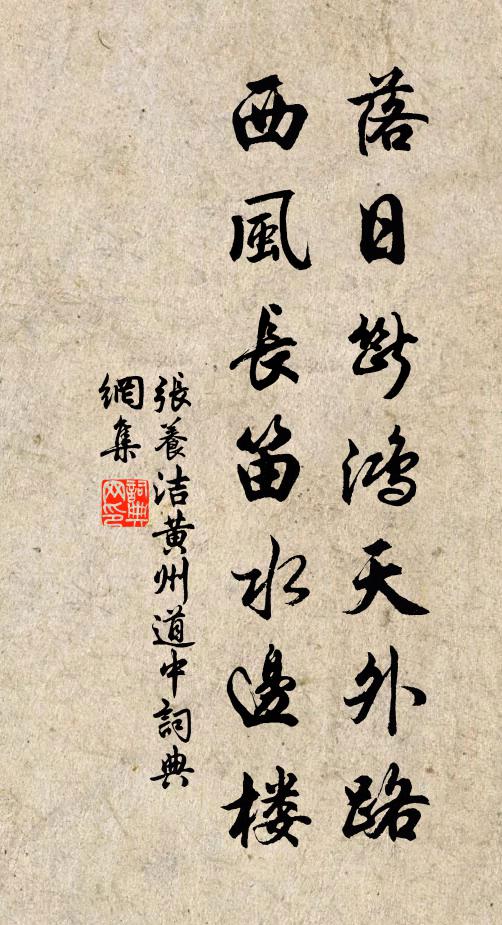 落日斷鴻天外路
西風長笛水邊楼
張養洁黄州道中詞典
網集
詞典
网印